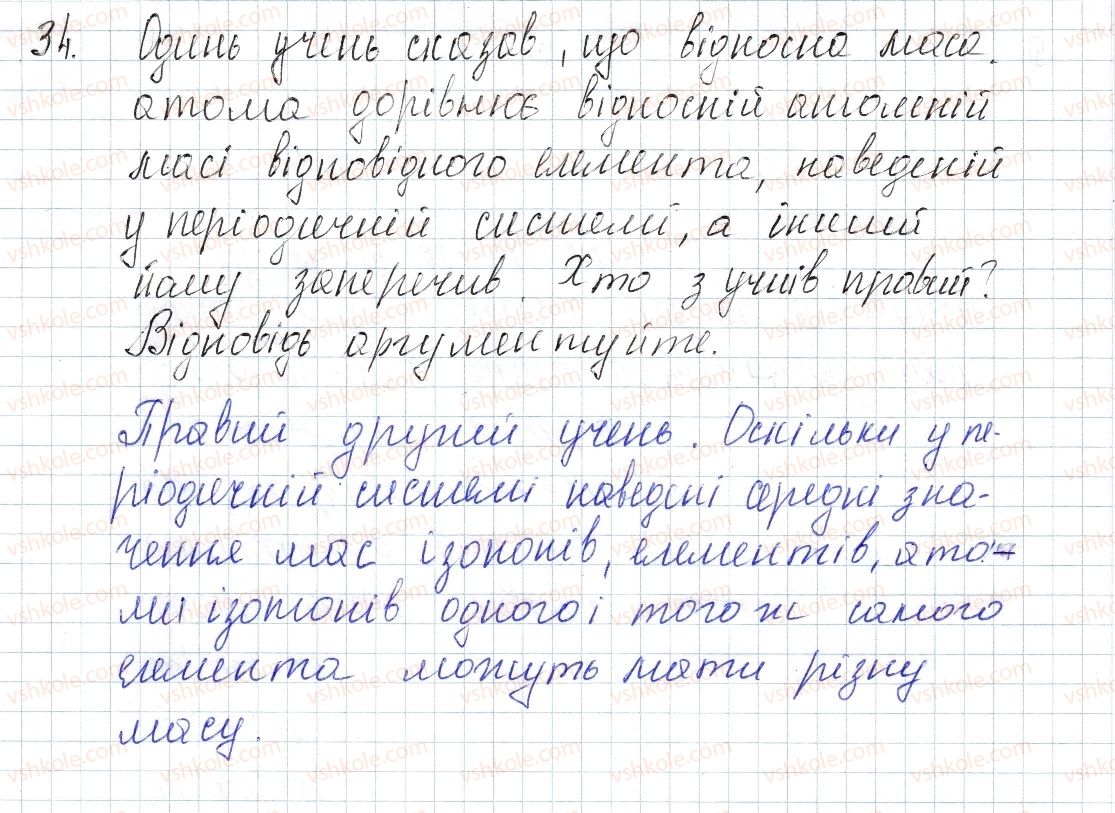 34. Одинь учень сказав, що відносна маса
атома дорівнює відносній атомній
масі відповідного елемента, наведеній
у періодичній системі, а інший
йому заперечив. Хто з учнів правий?
Відповідь аргументуйте.
Правий другий учень. Оскільки у пе-
ріодичній системі наведені середні зна-
чення мас ізотопів, елементів, ато-
ми ізотопів одного і того ж самого
елемента можуть мати різну
масу.